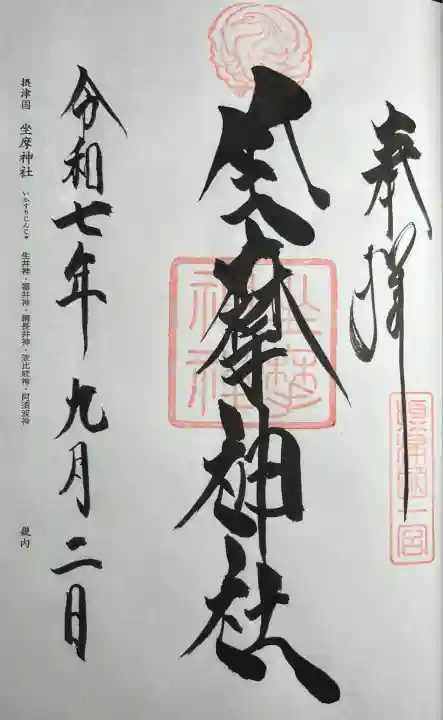 奉拝
摂津国一宮
坐摩神社
坐摩神社
令和七年九月二日
摂津国 坐摩神社 いかすりじんじゃ 生井神・福井神・綱長井神・波比岐神・阿須波神 畿内